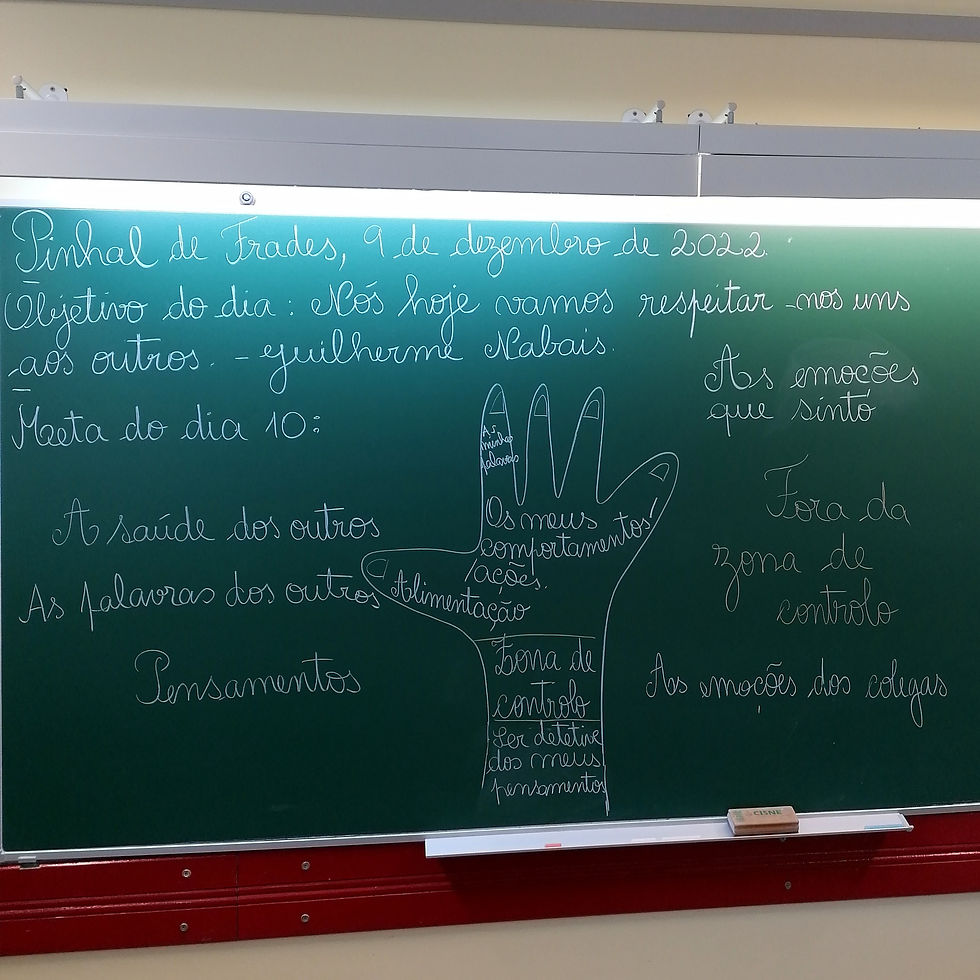 Pinhal de Frades, 9 de dezembro de 2022.
Objetivo do dia: Nós hoje vamos respeitar-nos uns
aos outros. - Guilherme Nabais.
Meta do dia 10:
As emoções
que sinto
As
minhas
palavras
A saúde dos outros
Os meus
comportamentos/
ações.
Fora da
zona de
controlo
As palavras dos outros
Alimentação
Pensamentos
Zona de
controlo
As emoções dos colegas
Ser detetive
dos meus
pensamentos
CISNE